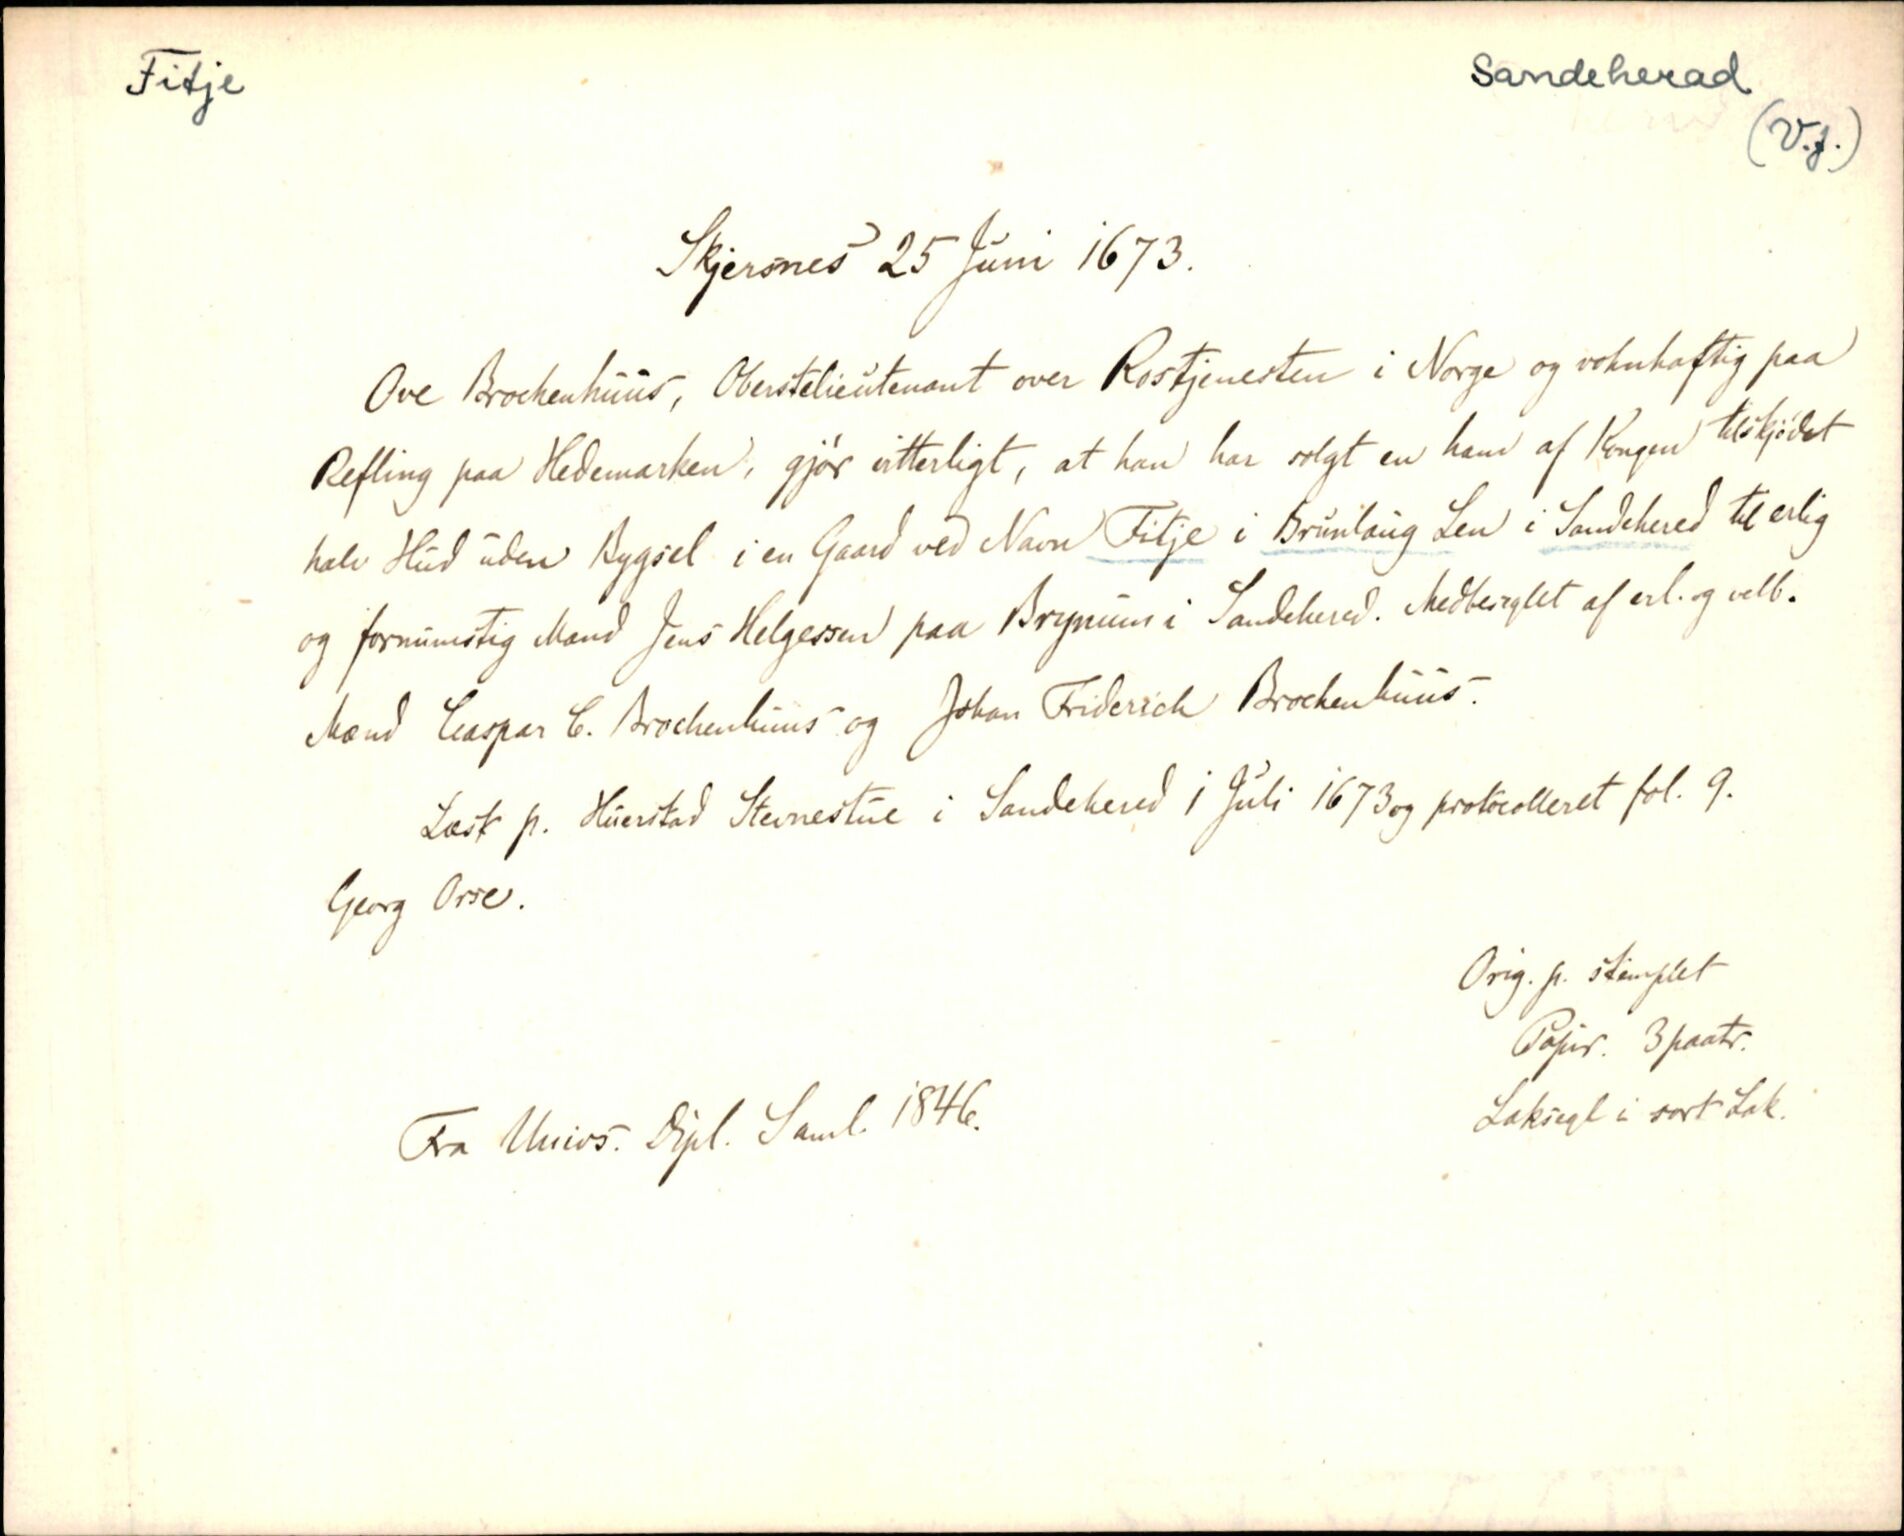 Fitje
Sandeherad
(V.f.)
Skjersnes 25 Juni 1673.
Ove Brockenhuus, Oberstelieutenant over Rostjenesten i Norge og vohnhaftig paa
Refling paa Hedemarken, gjör vitterligt, at han har solgt en ham af Kongen tilskjödet
halv Hud uden Bygsel i en Gaard ved Navn Fitje i Brunlaug Len i Sandehered til erlig
og fornumstig Mand Jens Helgessen paa Brynum i Sandehered. Medbeseglet af erl. og velb.
Mænd Caspar C. Brochenhuus og Johan Friderich Brochenhuus.
Læst p. Huerstad Stevnestue i Sandehered 1 Juli 1673 og protocolleret fol. 9.
Georg Orse.
Orig. p. stemplet
Papir. 3 paatr.
Laksegl i sort Lak.
Fra Univs. Dipl. Saml. 1846.